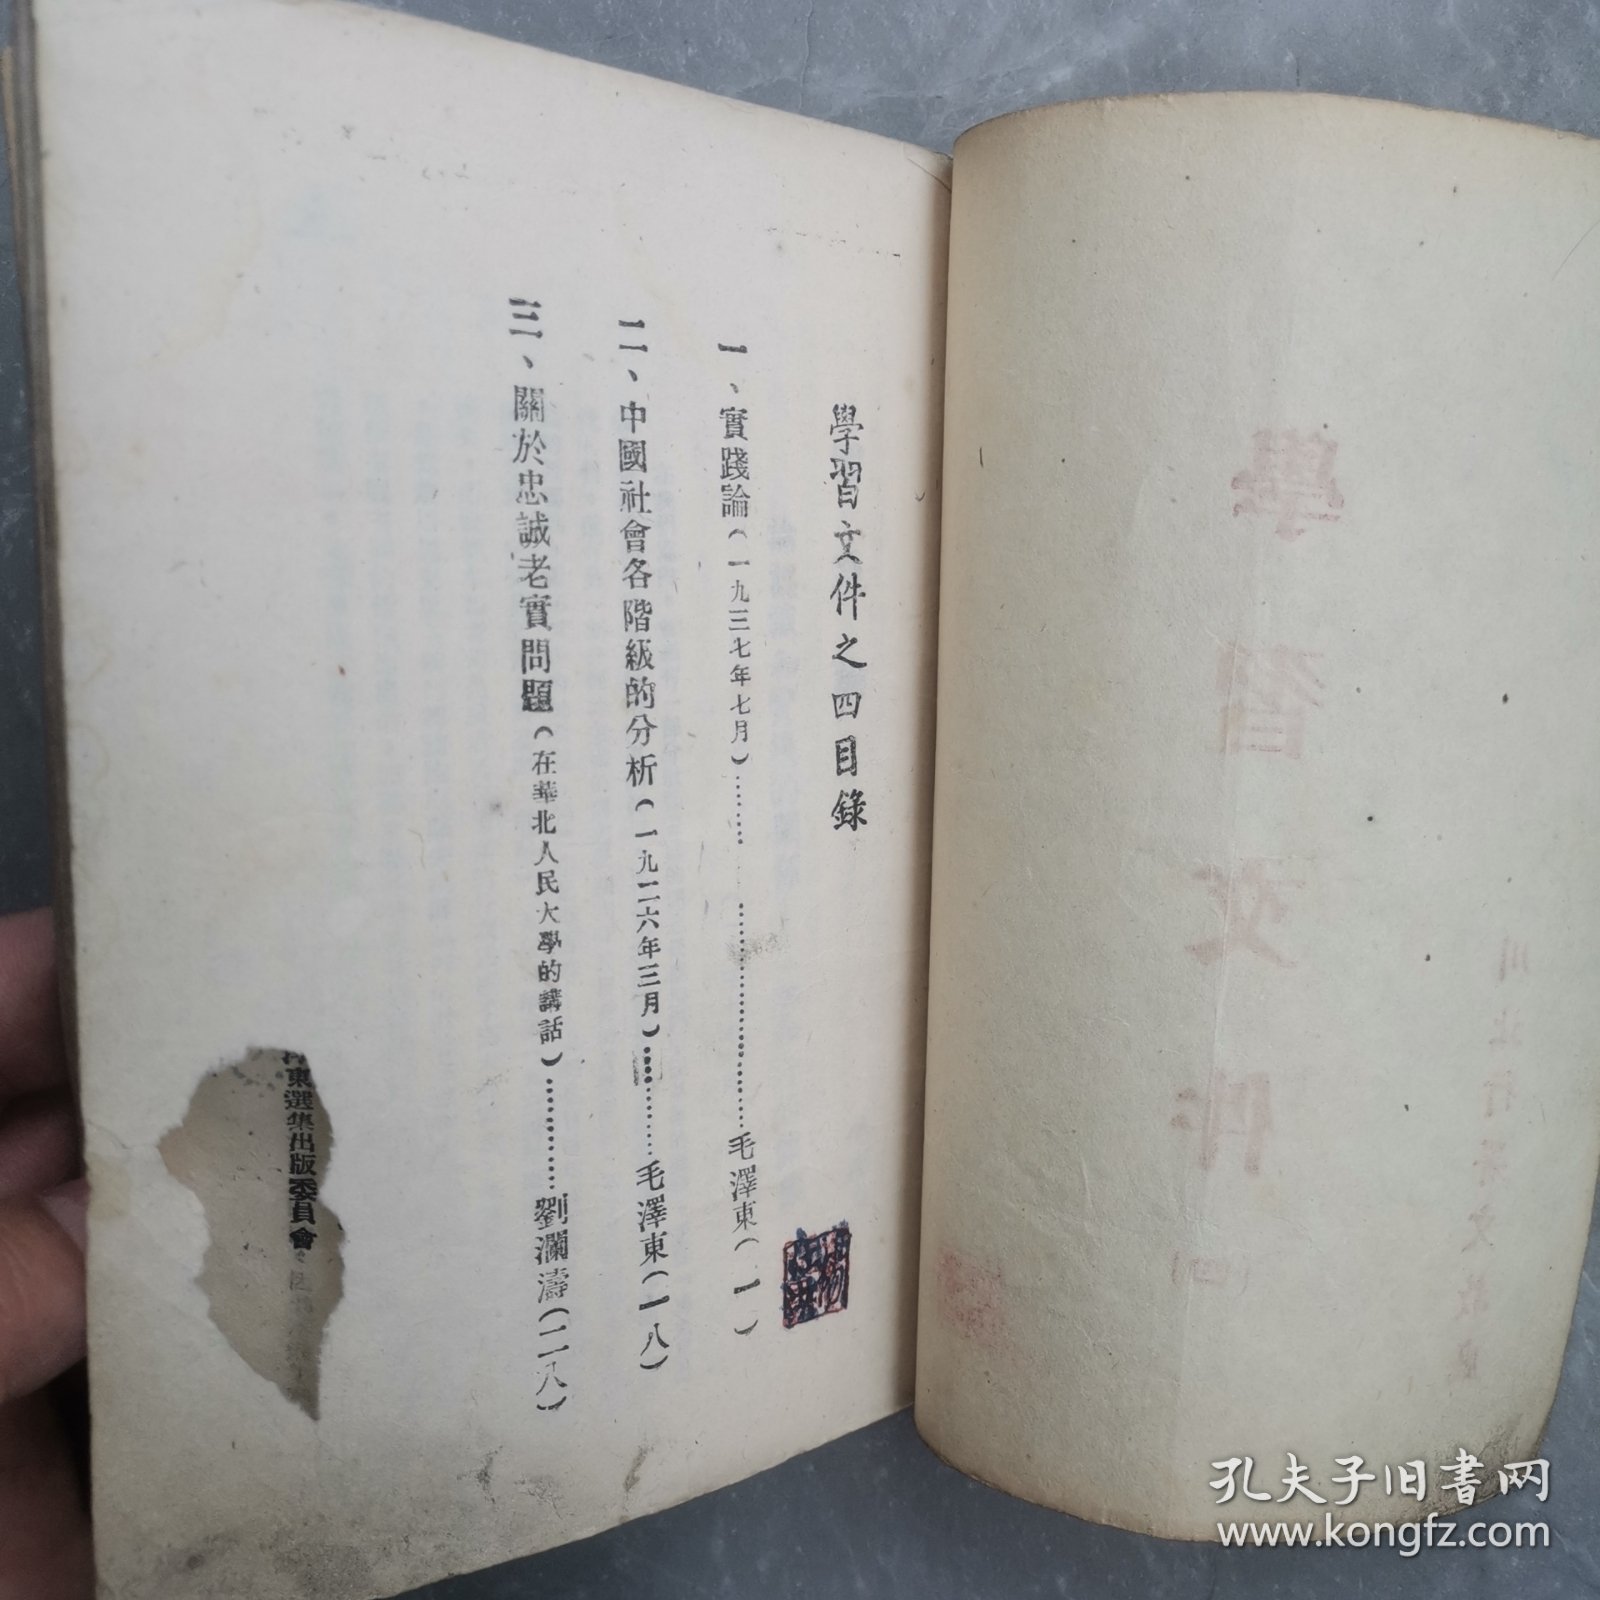 學習文件之四目錄
一、實踐論(一九三七年七月)…………毛澤東(一)
二、中國社會各階級的分析(一九二六年三月)…………毛澤東(一八)
三、關於忠誠老實問題(在華北人民大學的講話)…………劉瀾濤(二八)
東選集出版委員會
學習文件
川北行署文教廳
孔夫子旧书网
www.kongfz.com